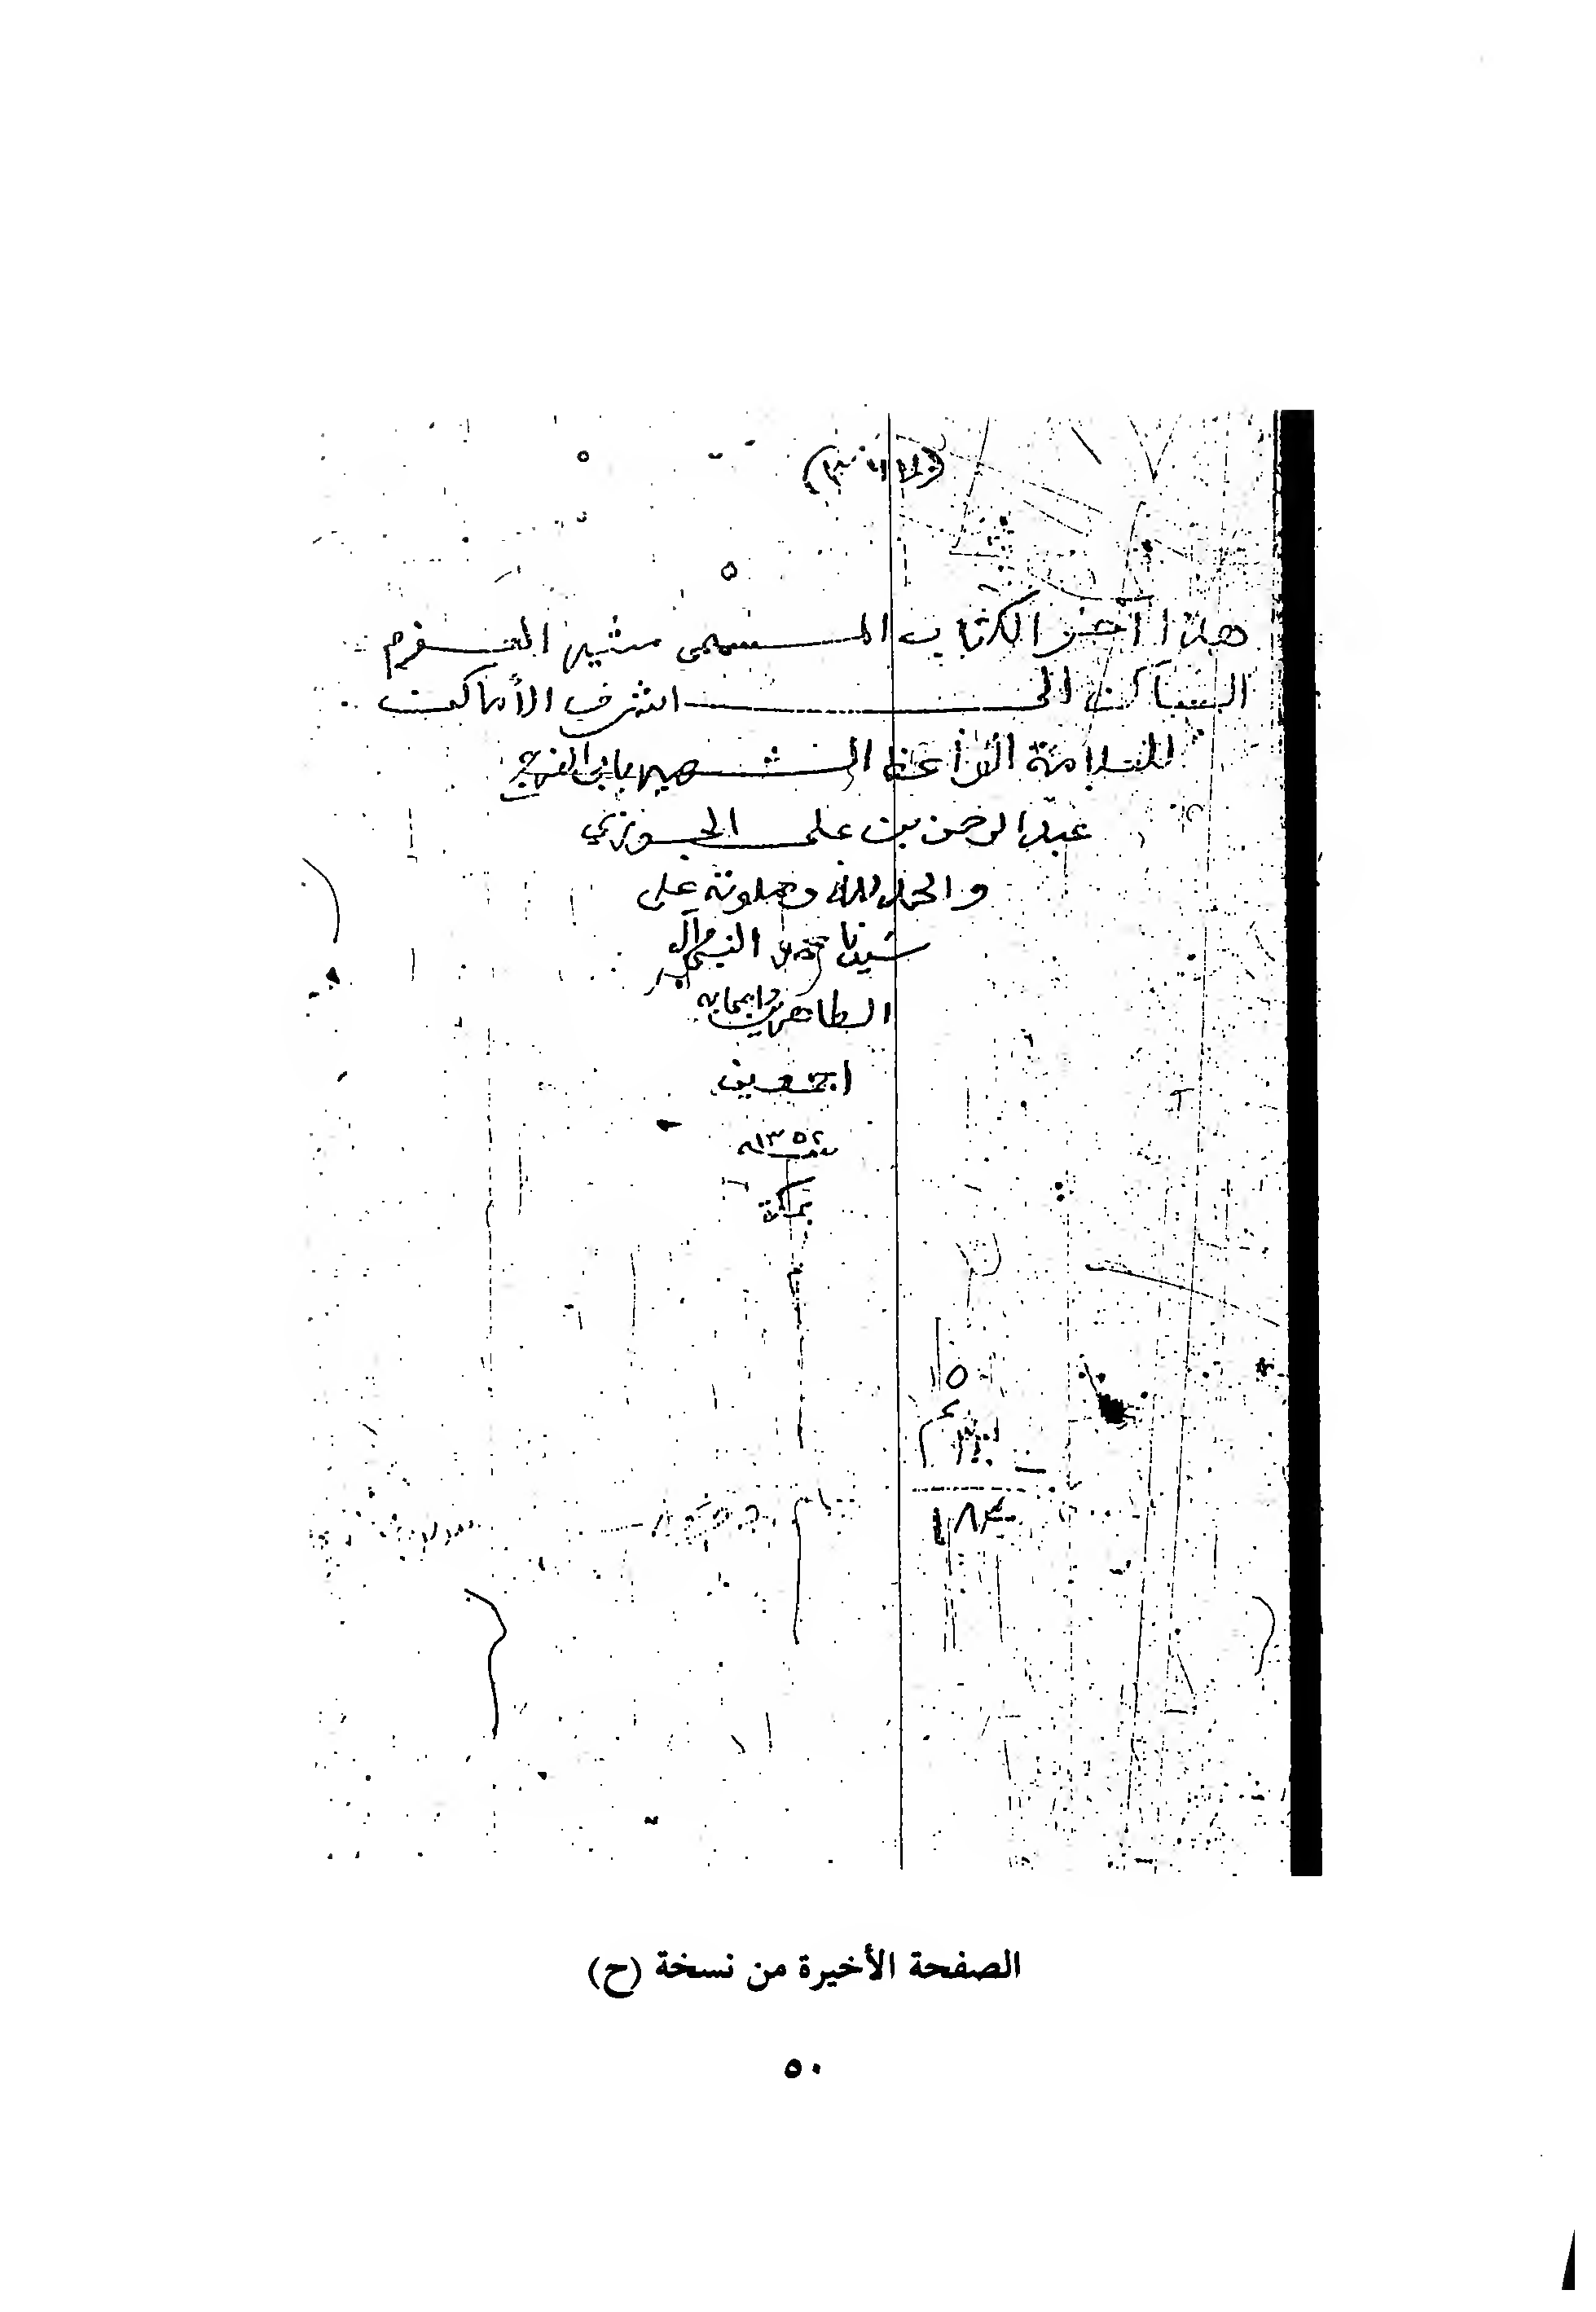 هذا آخر الكتاب المسمى مثير الغرم
الساكن الى اشرف الأماكن
للعلامة الواعظ الشهير بابي الفرج
عبد الرحمن بن علي الجوزي
والحمد لله وصلوته على
سيدنا محمد النبي وآله
الطاهرين واصحابه
اجمعين
سنة ١٣٥٢
بمكة
الصفحة الأخيرة من نسخة (ح)
٥٠